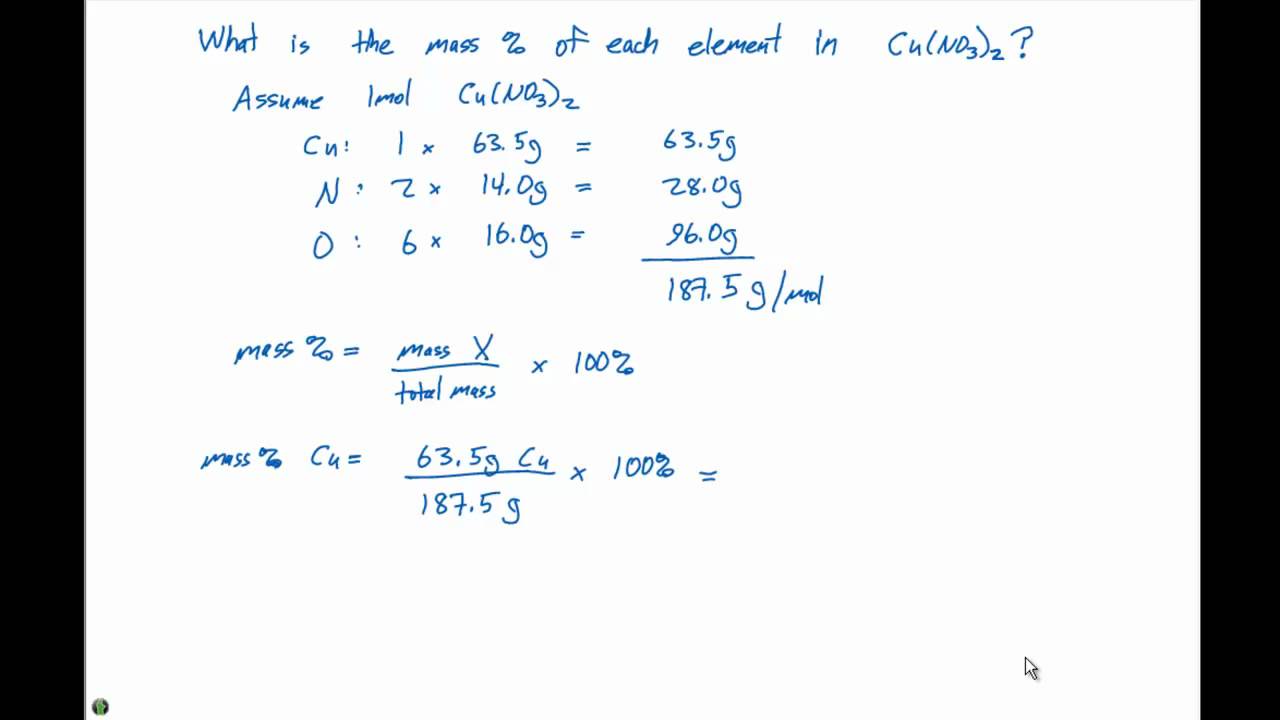 What is the mass % of each element in Cu(NO₃)₂?
Assume 1mol Cu(NO₃)₂
Cu: 1 × 63.5g = 63.5g
N: 2 × 14.0g = 28.0g
O: 6 × 16.0g = 96.0g
187.5 g/mol
mass % = mass X / total mass × 100%
mass % Cu = 63.5g Cu / 187.5 g × 100% =